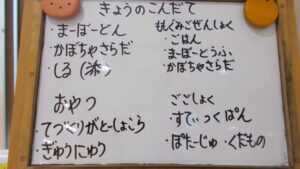 きょうのこんだて
・まーぼーどん
・かぼちゃさらだ
・しる
おやつ
・てづくりがとーしょこら
・ぎゅうにゅう
もぐみごぜんしょく
・ごはん
・まーぼーどうふ
・かぼちゃさらだ
ごごしょく
・すてぃっくぱん
・ぽたーじゅ・くだもの